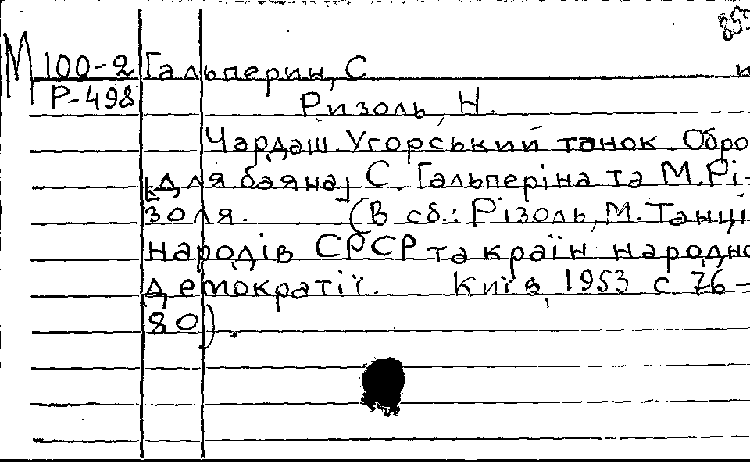 855
М 100-2 Гальперин, С. и
Р-498 Ризоль, Н.
Чардаш. Угорський танок. Обро
[для баяна] С. Гальперіна та М. Рі-
золя. (В сб.: Різоль, М. Танці
народів СРСР та країн народно
демократії. Київ, 1953 с. 76-
80).